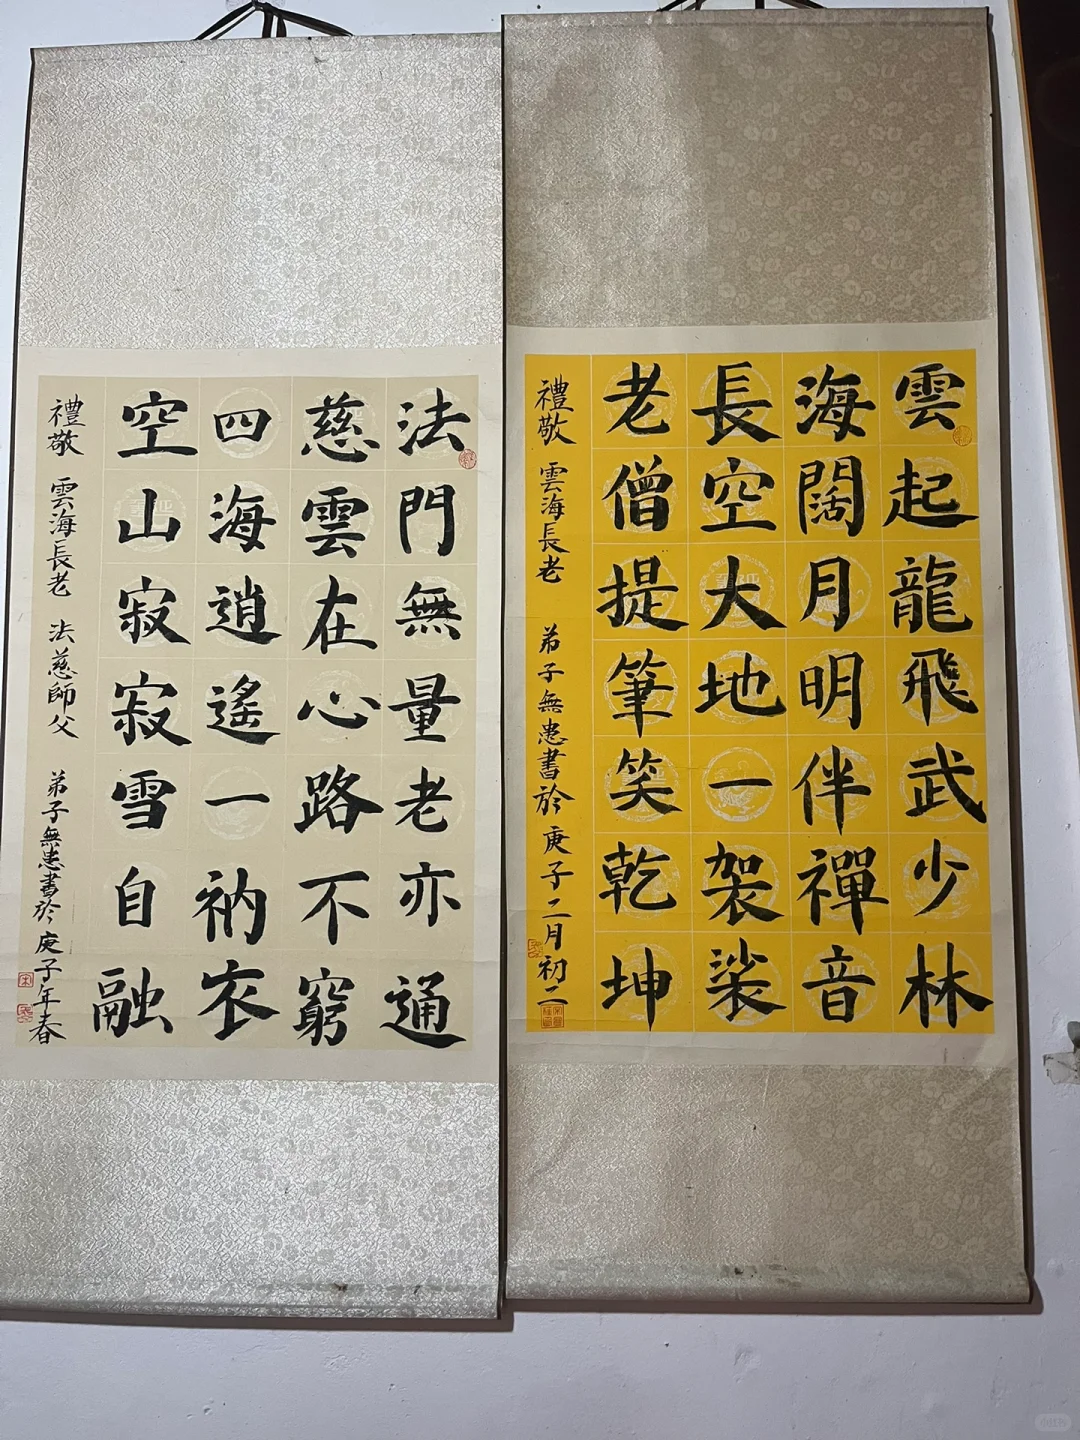 雲起龍飛武少林
海闊月明伴禪音
長空大地一袈裟
老僧提筆笑乾坤
禮敬 雲海長老 弟子無患書於庚子二月初二
法門無量老亦通
慈雲在心路不窮
四海逍遙一衲衣
空山寂寂雪自融
禮敬 雲海長老 法慈師父 弟子無患書於庚子年春
小红书